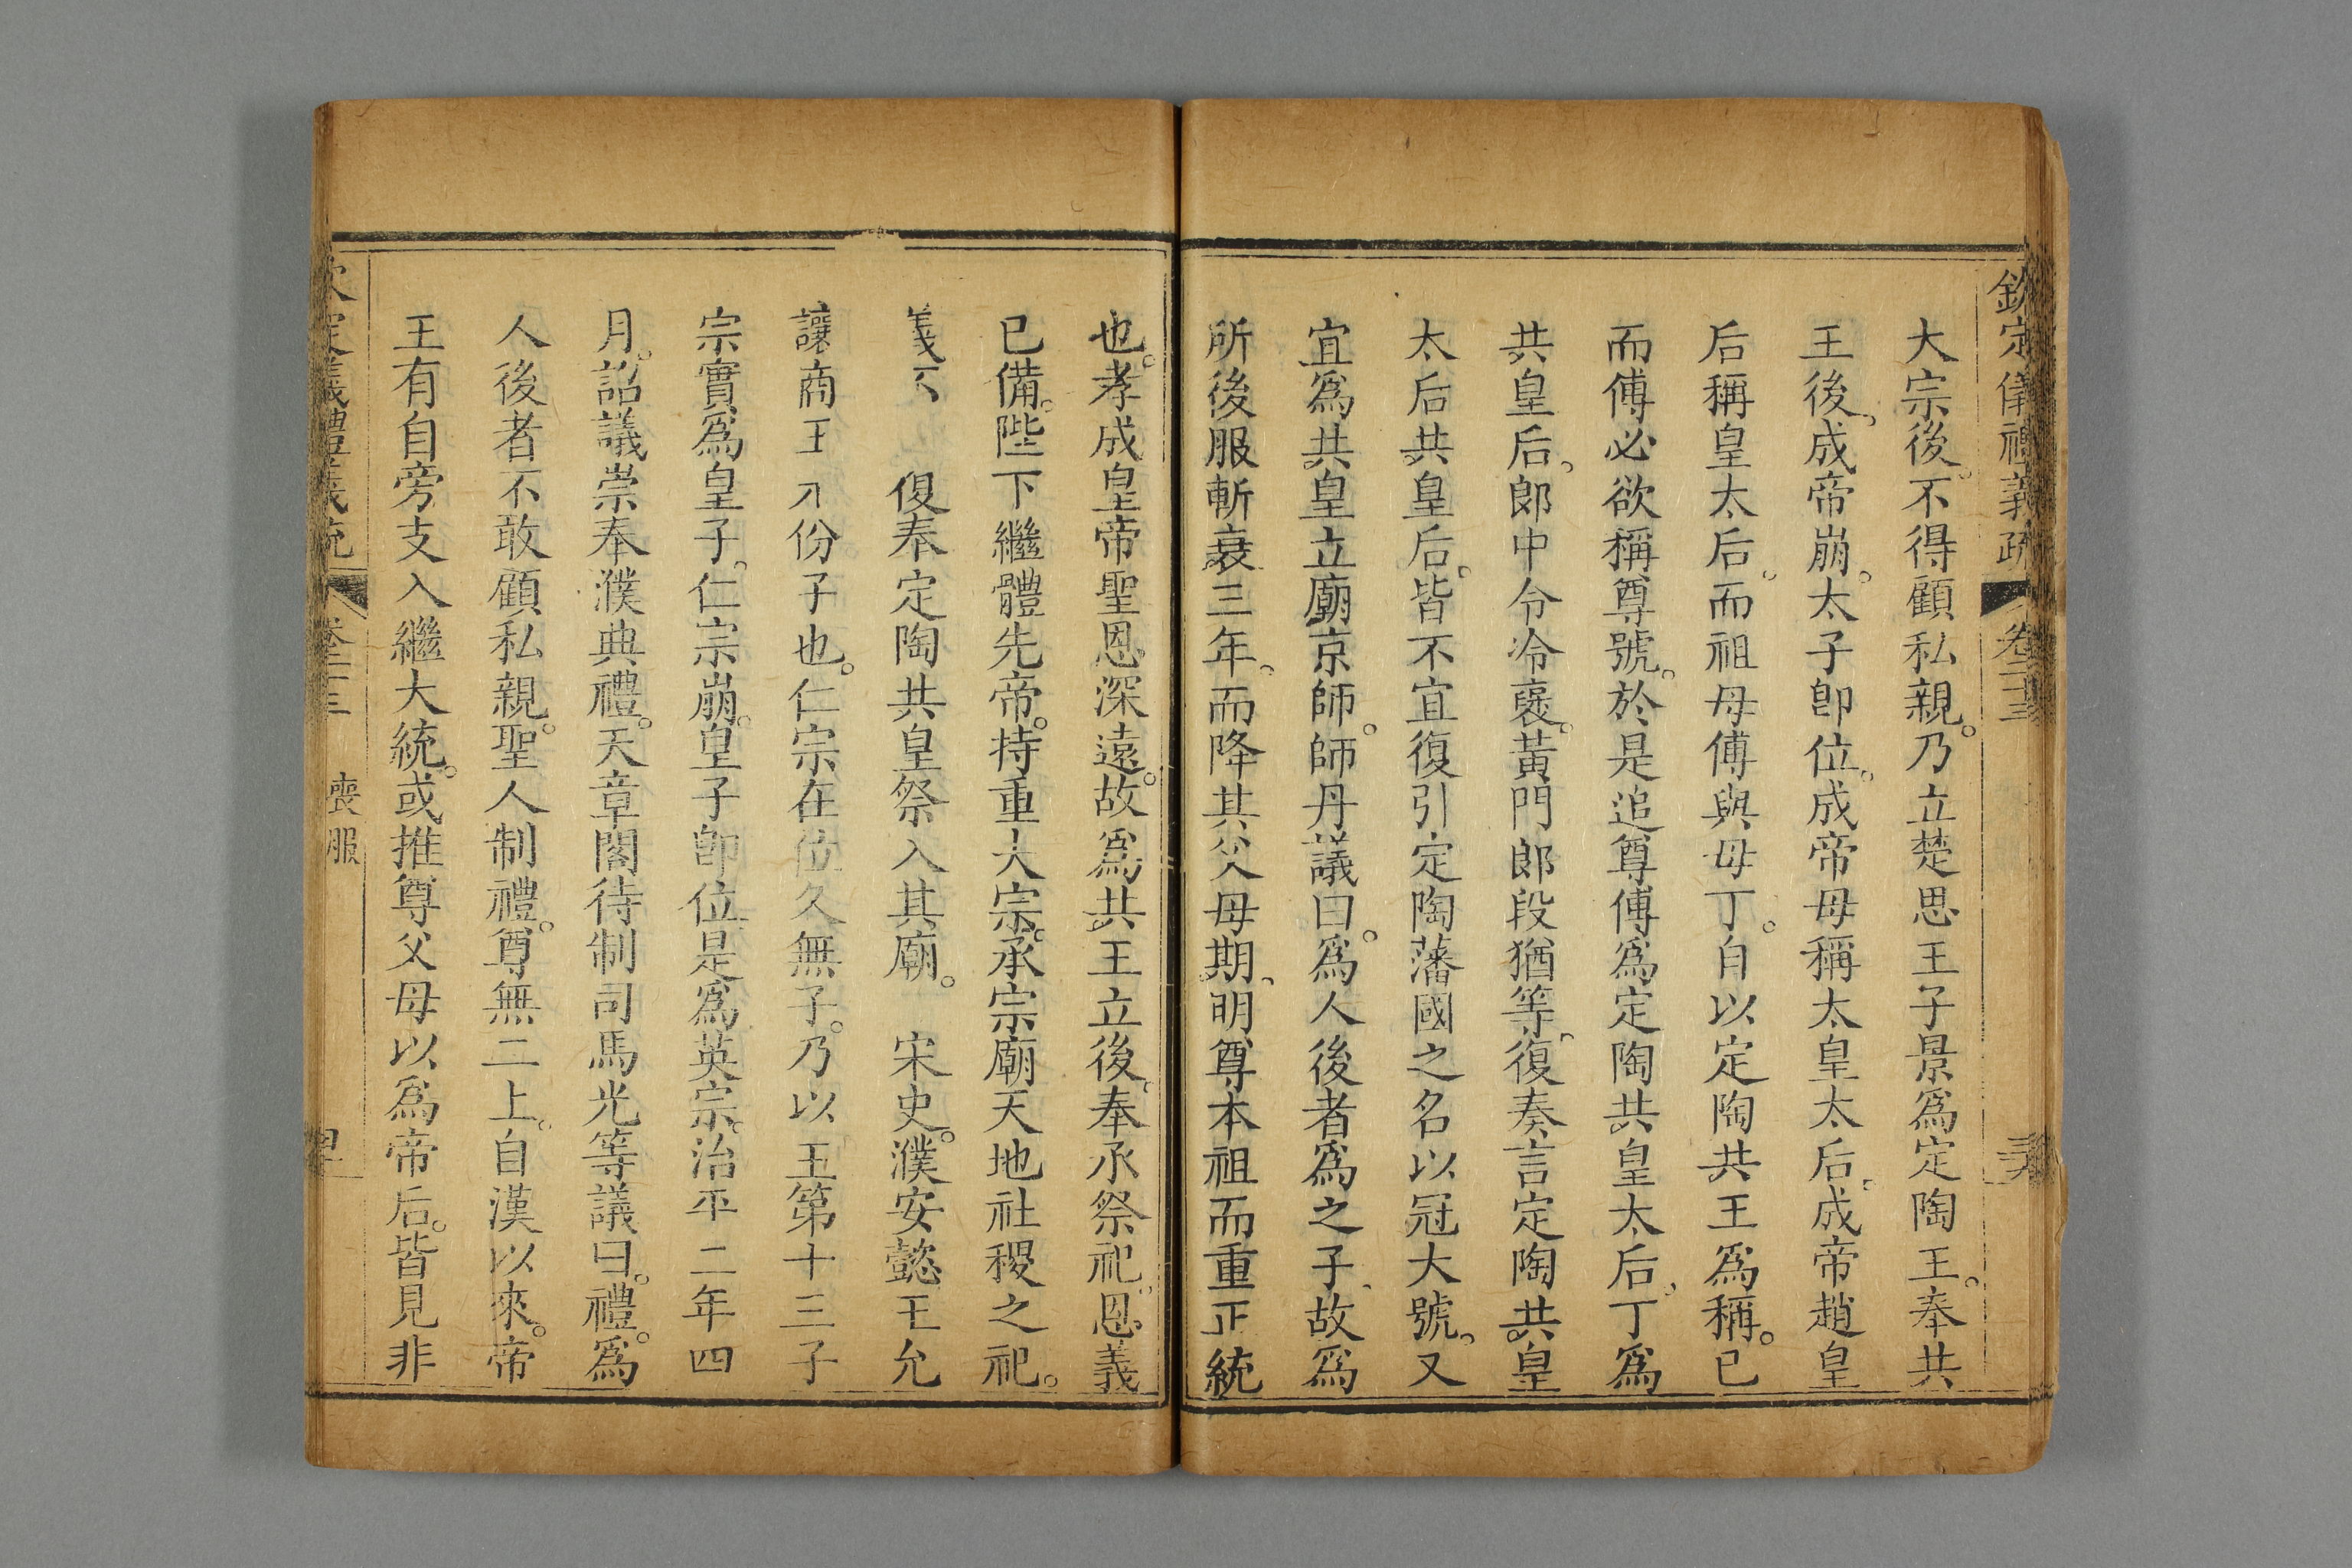 欽定儀禮義疏 卷二十三
大宗後不得顧私親。乃立楚思王子景爲定陶王。奉共
王後。成帝崩。太子卽位。成帝母稱太皇太后。成帝趙皇
后稱皇太后。而祖母傅與母丁。自以定陶共王爲稱。已
而傅必欲稱尊號。於是追尊傅爲定陶共皇太后。丁爲
共皇后。郎中令冷襃。黃門郎段猶等。復奏言定陶共皇
太后共皇后。皆不宜復引定陶藩國之名以冠大號。又
宜爲共皇立廟京師。師丹議曰。爲人後者爲之子、故爲
所後服斬衰三年、而降其父母期、明尊本祖而重正統
也。孝成皇帝聖恩深遠。故爲共王立後。奉承祭祀。恩義
已備。陛下繼體先帝。持重大宗。承宗廟天地社稷之祀。
義不 復奉定陶共皇祭入其廟。 宋史。濮安懿王允
讓商王 份子也。仁宗在位久無子。乃以王第十三子
宗實爲皇子。仁宗崩。皇子卽位是爲英宗。治平二年四
月。詔議崇奉濮典禮。天章閣待制司馬光等議曰。禮。爲
人後者不敢顧私親。聖人制禮。尊無二上。自漢以來。帝
王有自旁支入繼大統。或推尊父母以爲帝后。皆見非
喪服